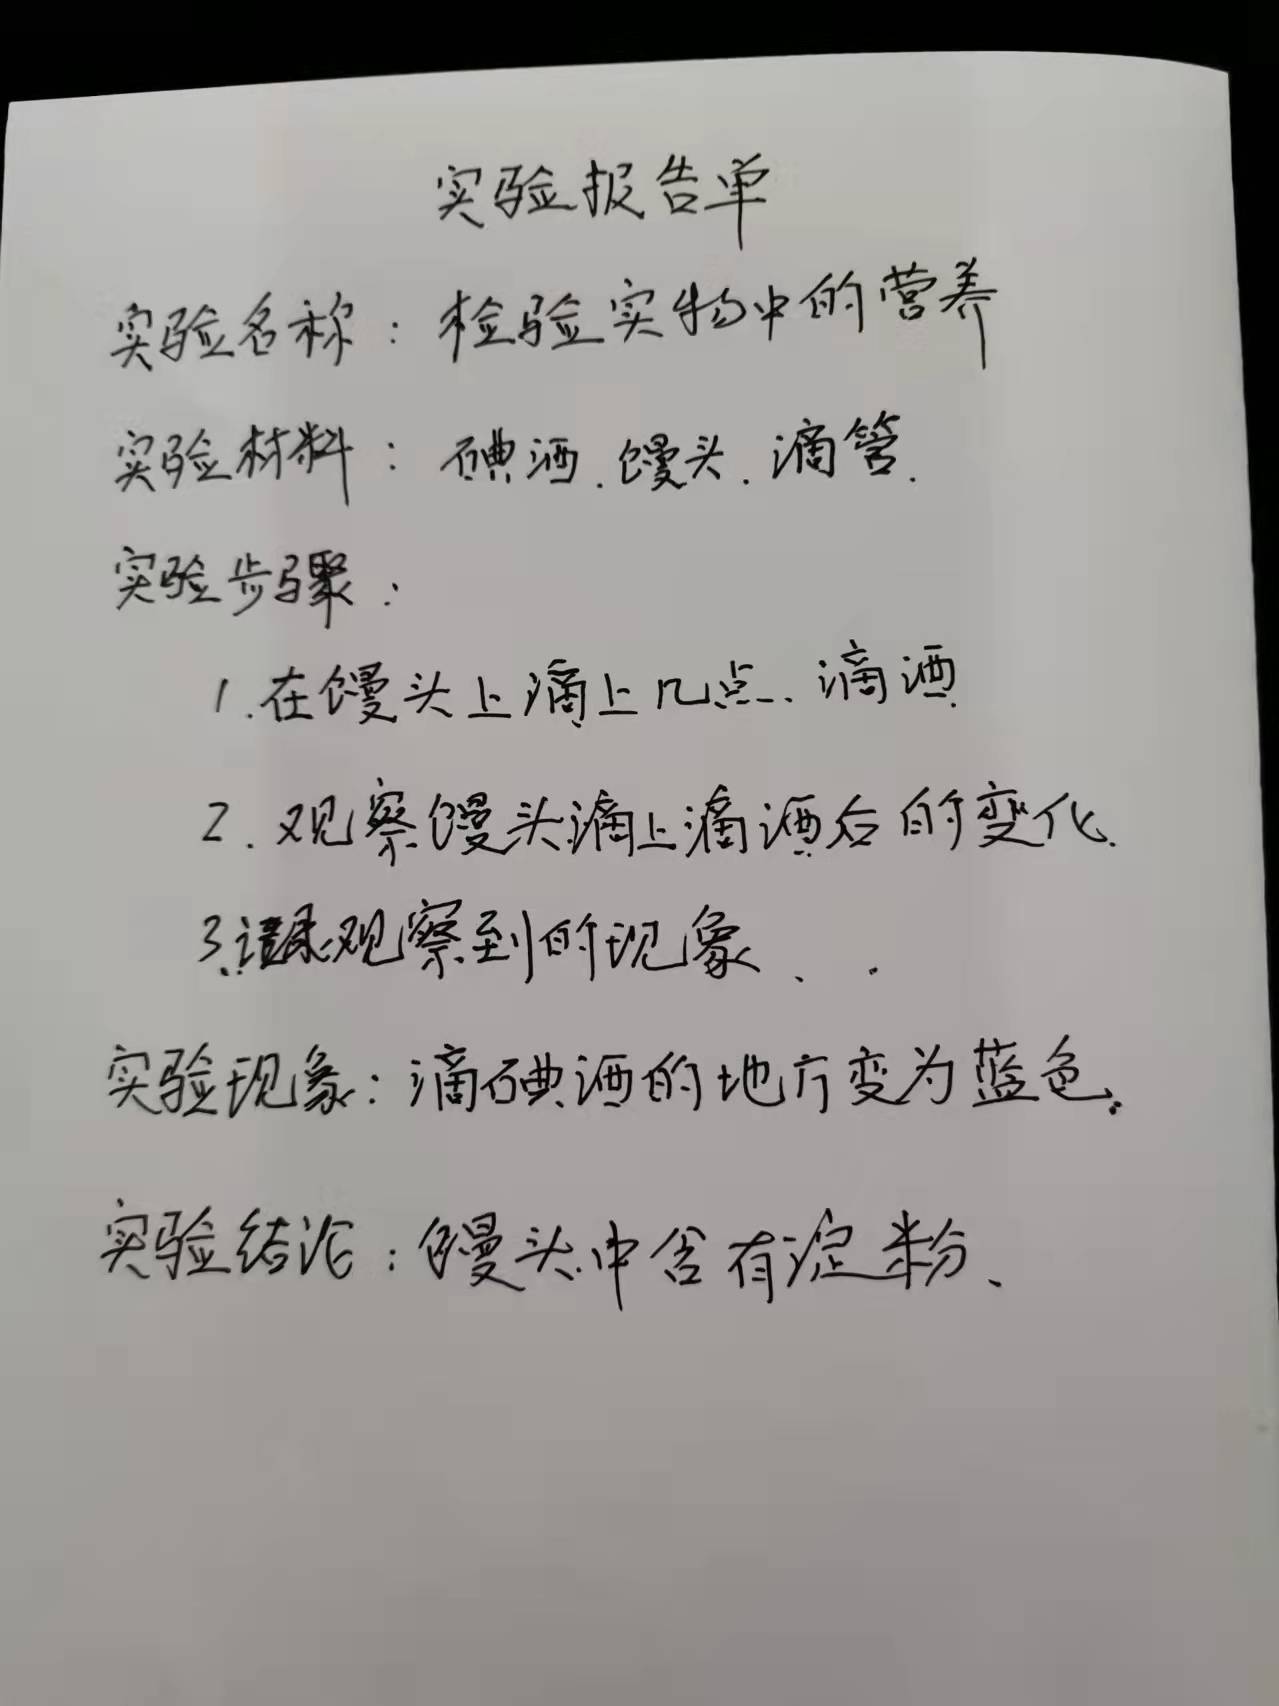 实验报告单
实验名称：检验实物中的营养
实验材料：碘酒.馒头.滴管.
实验步骤：
1.在馒头上滴上几点.滴酒
2.观察馒头滴上滴酒后的变化.
3.观察到的现象、.
实验现象：滴碘酒的地方变为蓝色.
实验结论：馒头中含有淀粉、